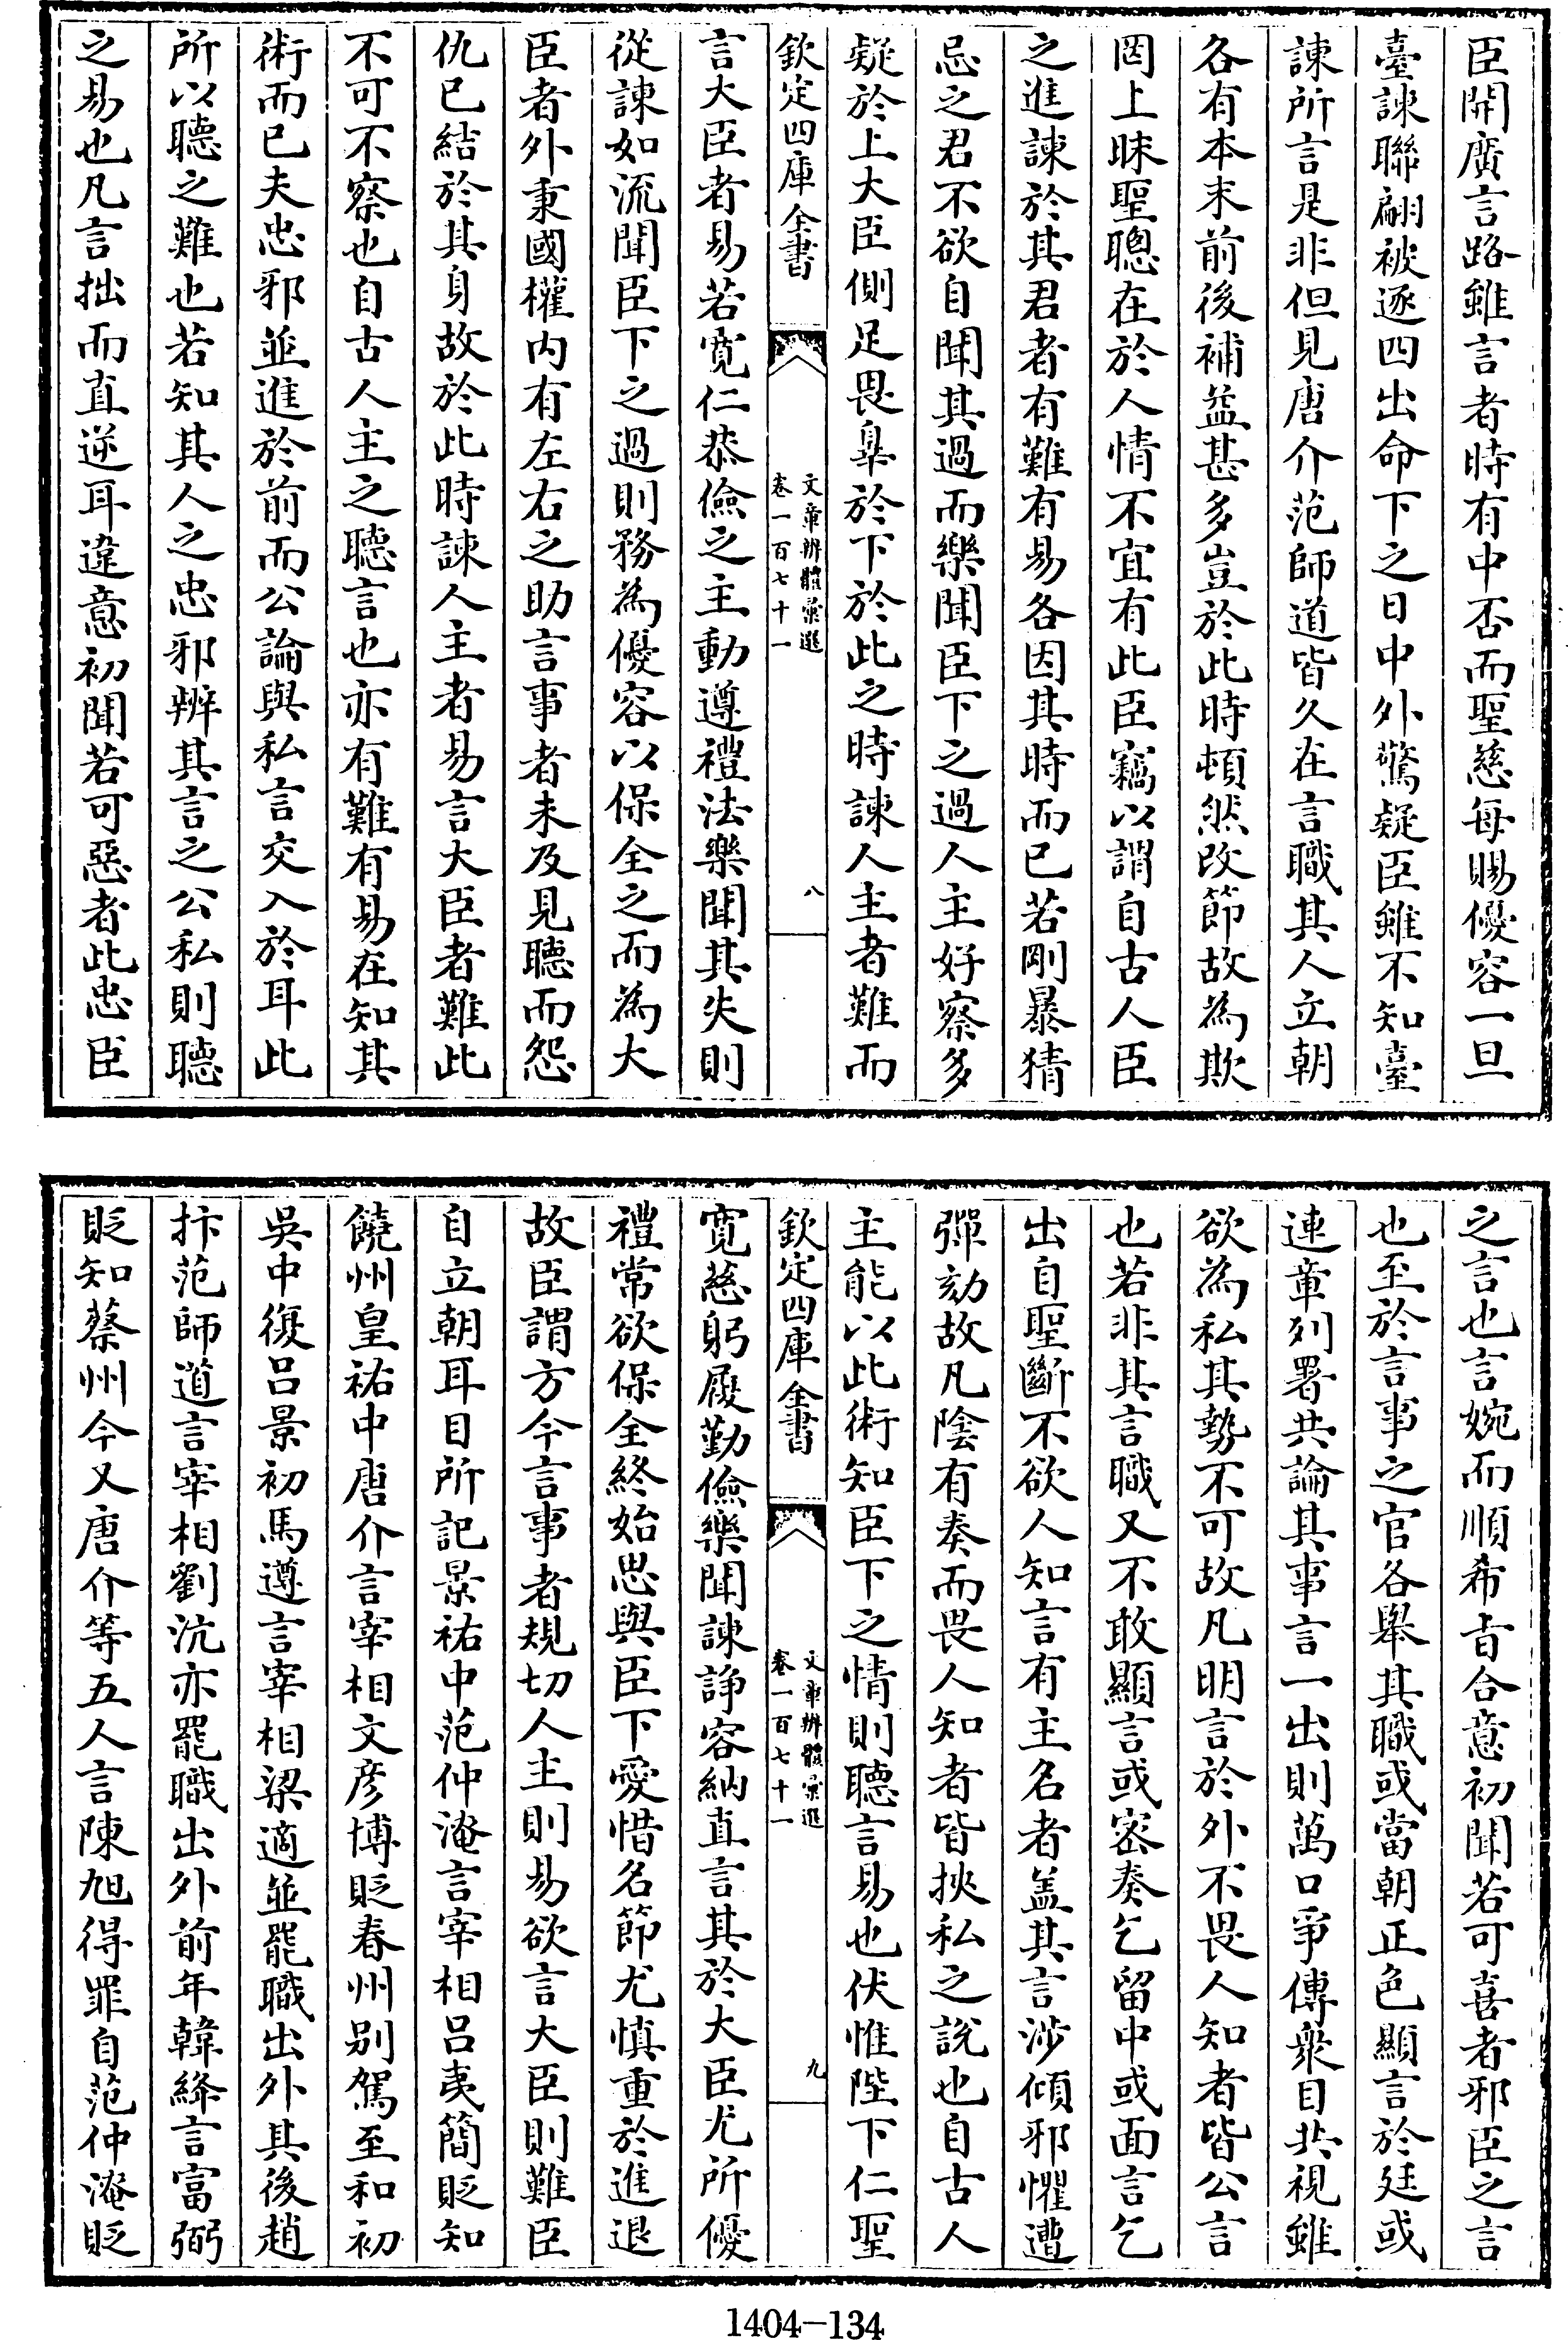 臣開廣言路雖言者時有中否而聖慈每賜優容一旦
臺諫聯翩被逐四出命下之日中外驚疑臣雖不知臺
諫所言是非但見唐介范師道皆久在言職其人立朝
各有本末前後補益甚多豈於此時頓然改節故為欺
罔上昧聖聰在於人情不宜有此臣竊以謂自古人臣
之進諫於其君者有難有易各因其時而已若剛暴猜
忌之君不欲自聞其過而樂聞臣下之過人主好察多
疑於上大臣側足畏辠於下於此之時諫人主者難而
欽定四庫全書
文章辨體彙選
卷一百七十一
八
言大臣者易若寛仁恭儉之主動遵禮法樂聞其失則
從諫如流聞臣下之過則務為優容以保全之而為大
臣者外秉國權内有左右之助言事者未及見聽而怨
仇已結於其身故於此時諫人主者易言大臣者難此
不可不察也自古人主之聽言也亦有難有易在知其
術而已夫忠邪並進於前而公論與私言交入於耳此
所以聽之難也若知其人之忠邪辨其言之公私則聽
之易也凡言拙而直逆耳違意初聞若可惡者此忠臣
之言也言婉而順希旨合意初聞若可喜者邪臣之言
也至於言事之官各舉其職或當朝正色顯言於廷或
連章列署共論其事言一出則萬口爭傳衆目共視雖
欲為私其勢不可故凡明言於外不畏人知者皆公言
也若非其言職又不敢顯言或密奏乞留中或面言乞
出自聖斷不欲人知言有主名者盖其言涉傾邪懼遭
彈劾故凡陰有奏而畏人知者皆挾私之說也自古人
主能以此術知臣下之情則聽言易也伏惟陛下仁聖
欽定四庫全書
文章辨體彙選
卷一百七十一
九
寛慈躬履勤儉樂聞諫諍容納直言其於大臣尤所優
禮常欲保全終始思與臣下愛惜名節尤慎重於進退
故臣謂方今言事者規切人主則易欲言大臣則難臣
自立朝耳目所記景祐中范仲淹言宰相呂夷簡貶知
饒州皇祐中唐介言宰相文彦博貶春州别駕至和初
吳中復呂景初馬遵言宰相梁適並罷職出外其後趙
抃范師道言宰相劉沆亦罷職出外前年韓絳言富弼
貶知蔡州今又唐介等五人言陳旭得罪自范仲淹貶
1404-134